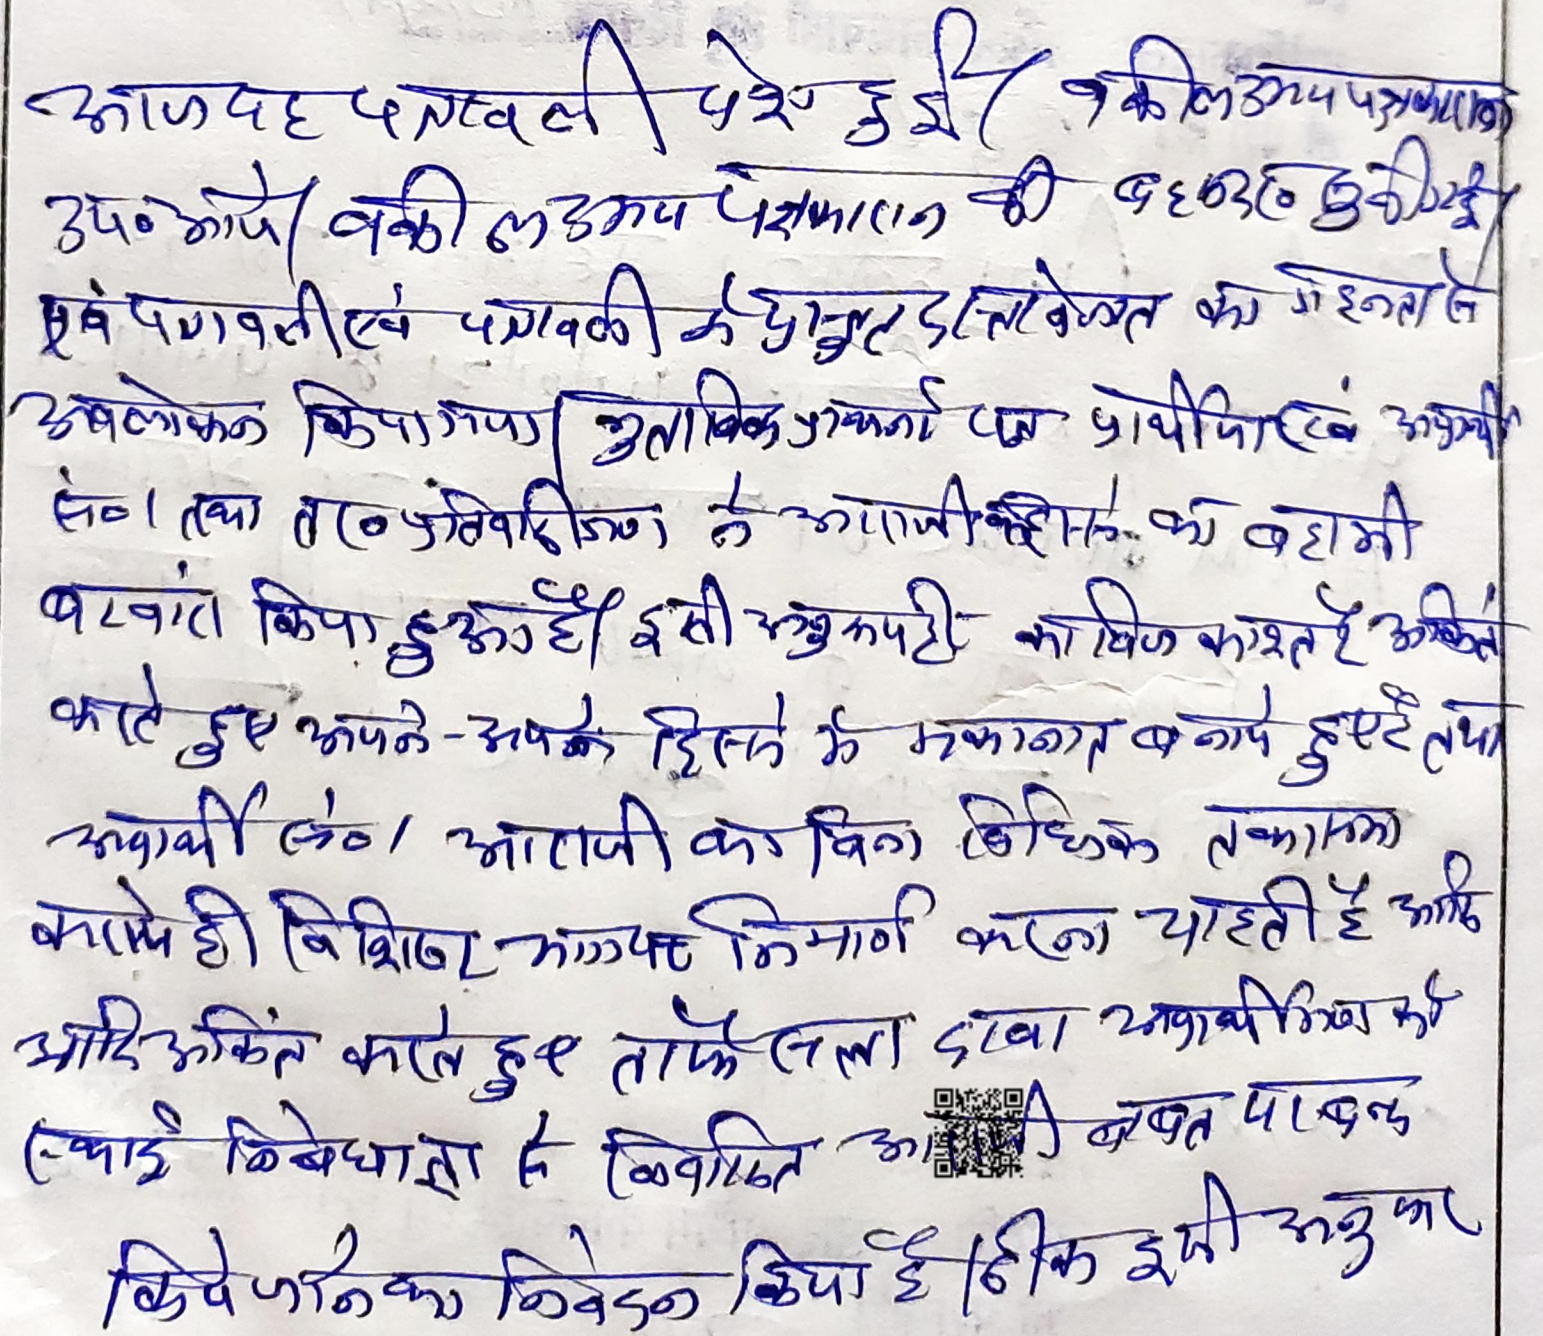 आज यह पत्रावली पेश हुई। वकील उभय पक्षकारान
उप० आये। वकील उभय पक्षकारान की बहस सुनी गई।
एवं पत्रावली एवं पत्रावली में प्रस्तुत दस्तावेजात का गहनता से
अवलोकन किया गया। मुताबिक प्रार्थना पत्र प्रार्थीया एवं अप्रार्थी
सं०1 तथा त० प्रतिवादीगण ने आराजी का बहामी
बटवारा किया हुआ है। इसी अनुरूप ही काबिज काश्त है अंकित
करते हुए अपने-अपने हिस्से में मकानात बनाये हुए है तथा
अप्रार्थी सं०1 आराजी का बिना विधिक तकासमा
कराये ही विशिष्ट भाग पर निर्माण करना चाहती है आदि
आदि अंकित करते हुए ताफैसला दावा अप्रार्थीगण को
स्थाई निषेधाज्ञा से विवादित बाबत पाबन्द
किये जाने का निवेदन किया है। ठीक इसी अनुरूप